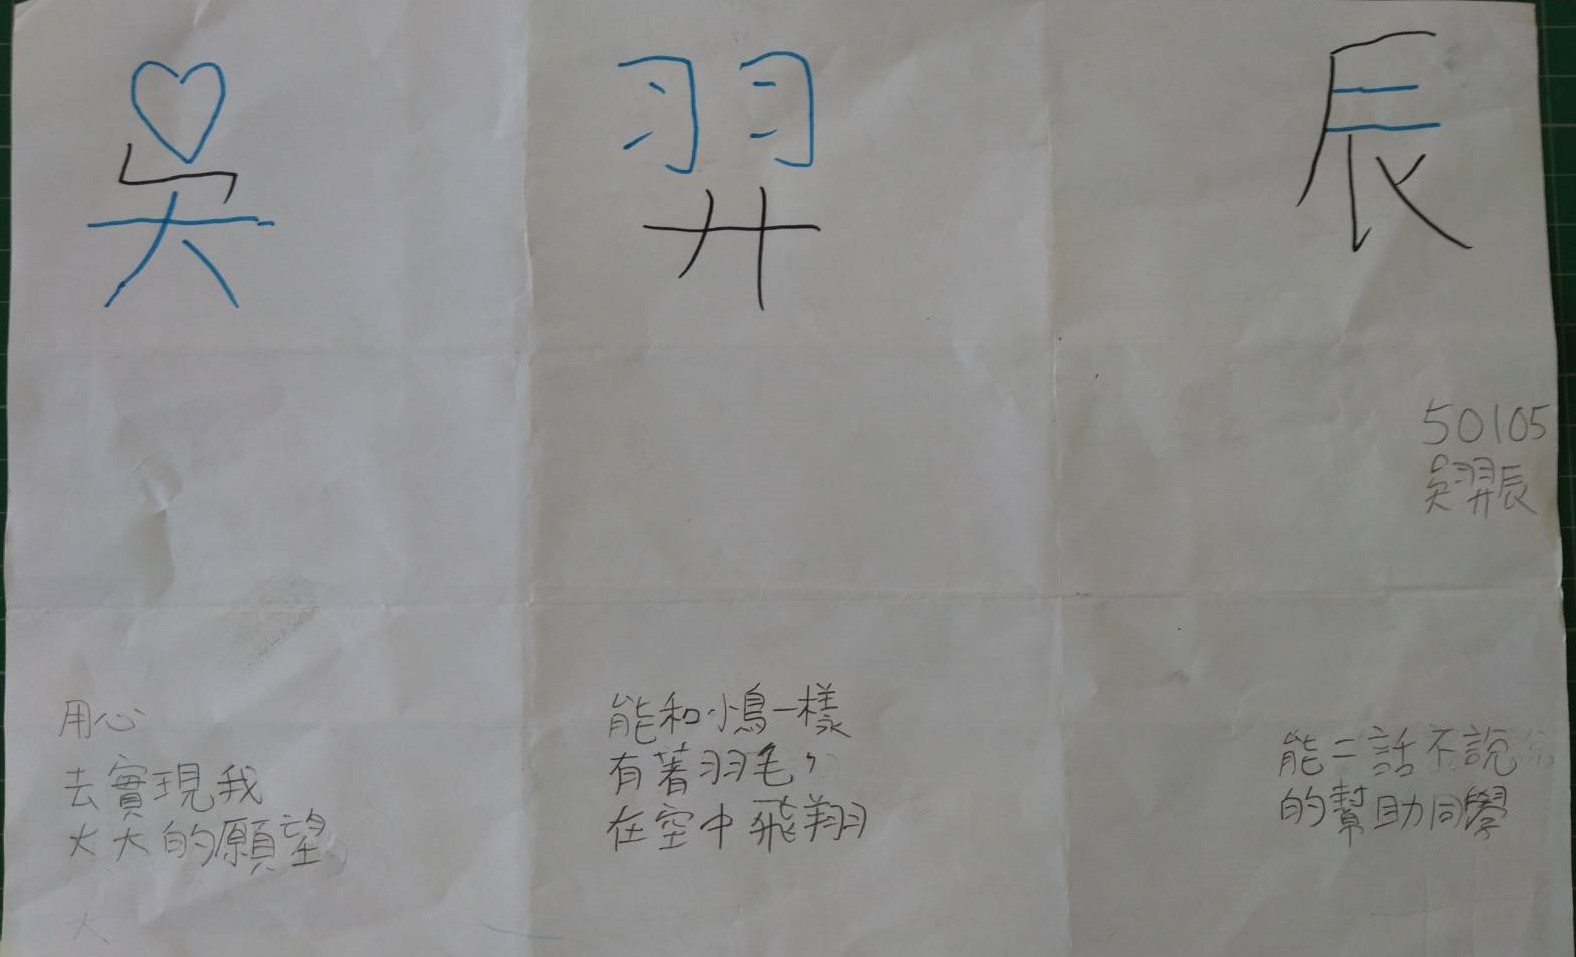 吳 羿 辰
50105
吳羿辰
用心
去實現我
大大的願望
能和小鳥一樣
有著羽毛，
在空中飛翔
能二話不說
的幫助同學